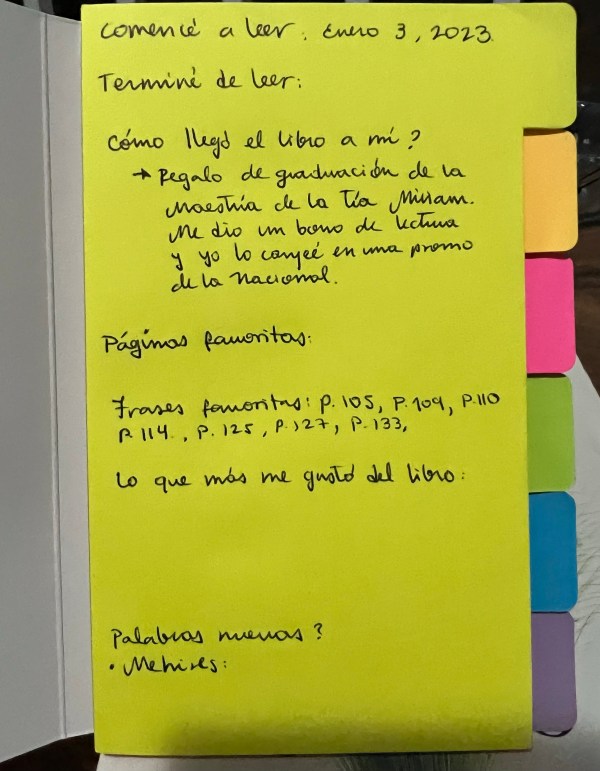 Comencé a leer: Enero 3, 2023.
Terminé de leer:
Cómo llegó el libro a mí?
→ Regalo de graduación de la
Maestría de la Tía Miriam.
Me dio un bono de lectura
y yo lo canjeé en una promo
de la Nacional.
Páginas favoritas:
Frases favoritas: P. 105, P. 109, P. 110
P. 114., P. 125, P. 127, P. 133,
Lo que más me gustó del libro:
Palabras nuevas?
• Mehires: